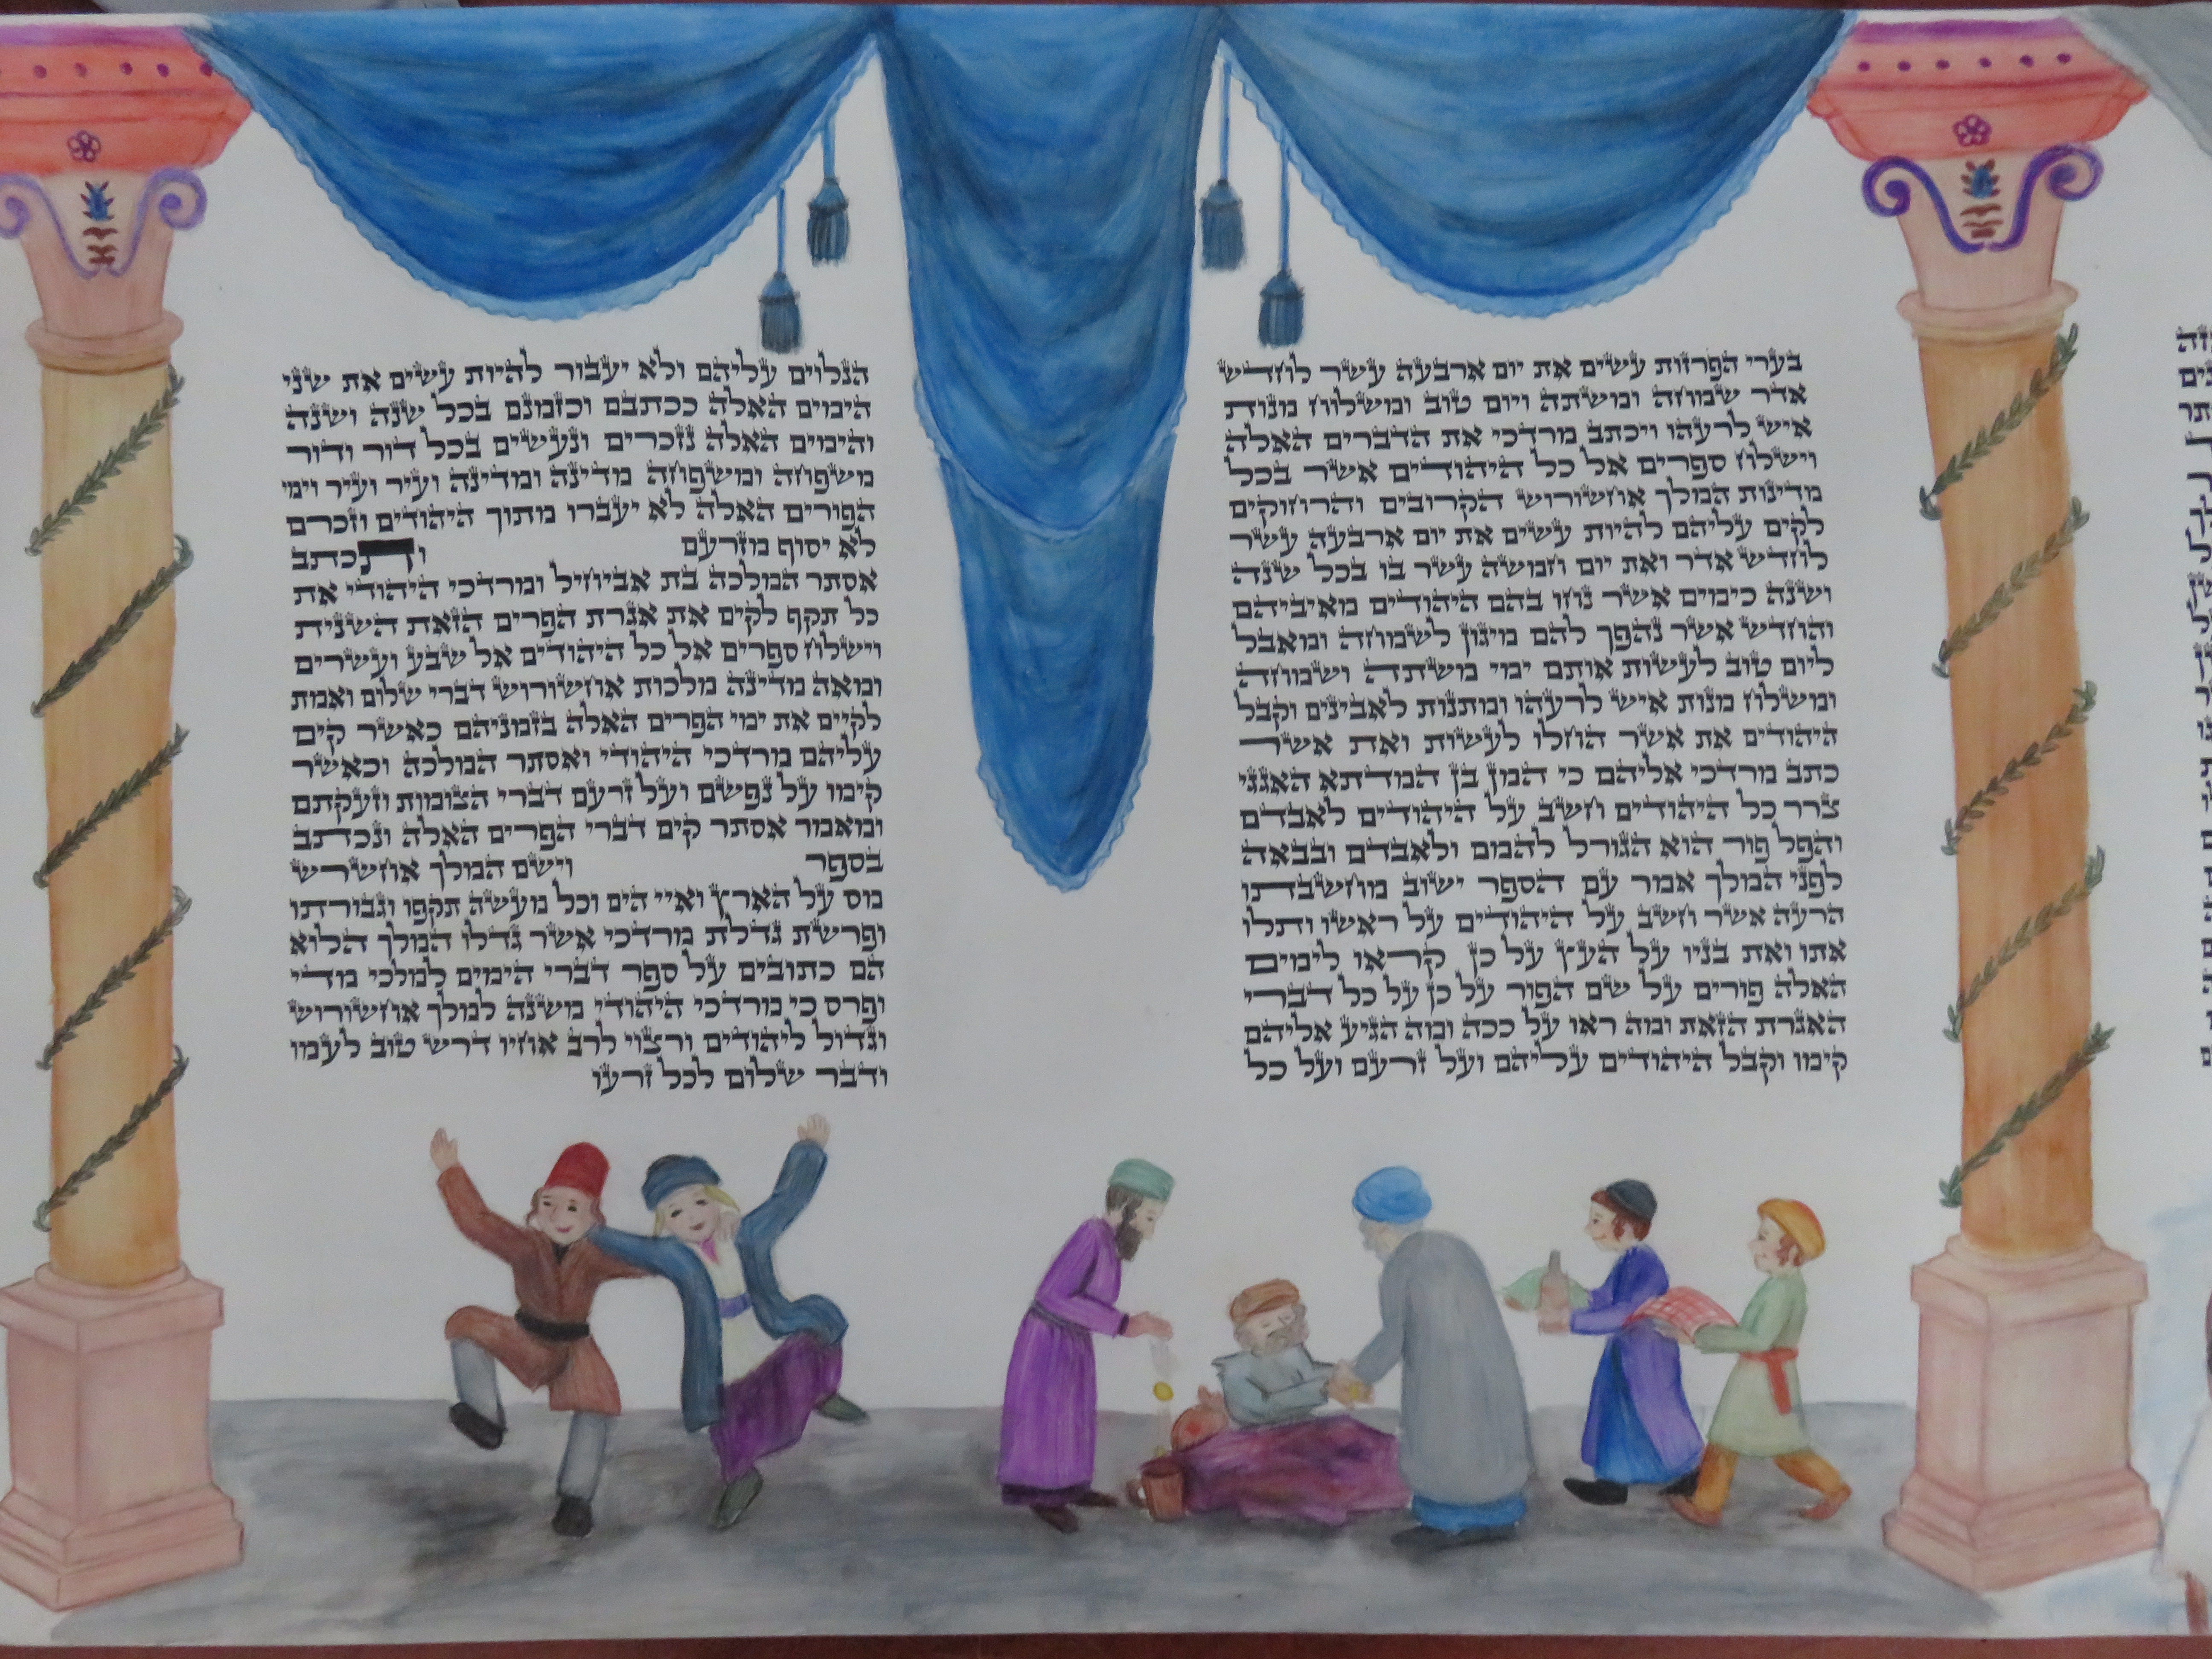 בערי הפרזות עשים את יום ארבעה עשר לחדש
אדר שמחה ומשתה ויום טוב ומשלח מנות
איש לרעהו ויכתב מרדכי את הדברים האלה
וישלח ספרים אל כל היהודים אשר בכל
מדינות המלך אחשורוש הקרובים והרחוקים
לקים עליהם להיות עשים את יום ארבעה עשר
לחדש אדר ואת יום חמשה עשר בו בכל שנה
ושנה כימים אשר נחו בהם היהודים מאיביהם
והחדש אשר נהפך להם מיגון לשמחה ומאבל
ליום טוב לעשות אותם ימי משתה ושמחה
ומשלח מנות איש לרעהו ומתנות לאבינים וקבל
היהודים את אשר החלו לעשות ואת אשר
כתב מרדכי אליהם כי המן בן המדתא האגגי
צרר כל היהודים חשב על היהודים לאבדם
והפל פור הוא הגורל להמם ולאבדם ובבאה
לפני המלך אמר עם הספר ישוב מחשבתו
הרעה אשר חשב על היהודים על ראשו ותלו
אתו ואת בניו על העץ על כן קראו לימים
האלה פורים על שם הפור על כן על כל דברי
האגרת הזאת ומה ראו על ככה ומה הגיע אליהם
קימו וקבל היהודים עליהם ועל זרעם ועל כל
הנלוים עליהם ולא יעבור להיות עשים את שני
הימים האלה ככתבם וכזמנם בכל שנה ושנה
והימים האלה נזכרים ונעשים בכל דור ודור
משפחה ומשפחה מדינה ומדינה ועיר ועיר וימי
הפורים האלה לא יעברו מתוך היהודים וזכרם
לא יסוף מזרעם ותכתב
אסתר המלכה בת אביחיל ומרדכי היהודי את
כל תקף לקים את אגרת הפרים הזאת השנית
וישלח ספרים אל כל היהודים אל שבע ועשרים
ומאה מדינה מלכות אחשורוש דברי שלום ואמת
לקיים את ימי הפרים האלה בזמניהם כאשר קים
עליהם מרדכי היהודי ואסתר המלכה וכאשר
קימו על נפשם ועל זרעם דברי הצומות וזעקתם
ומאמר אסתר קים דברי הפרים האלה ונכתב
בספר וישם המלך אחשרש
מס על הארץ ואיי הים וכל מעשה תקפו וגבורתו
ופרשת גדלת מרדכי אשר גדלו המלך הלוא
הם כתובים על ספר דברי הימים למלכי מדי
ופרס כי מרדכי היהודי משנה למלך אחשורוש
וגדול ליהודים ורצוי לרב אחיו דרש טוב לעמו
ודבר שלום לכל זרעו